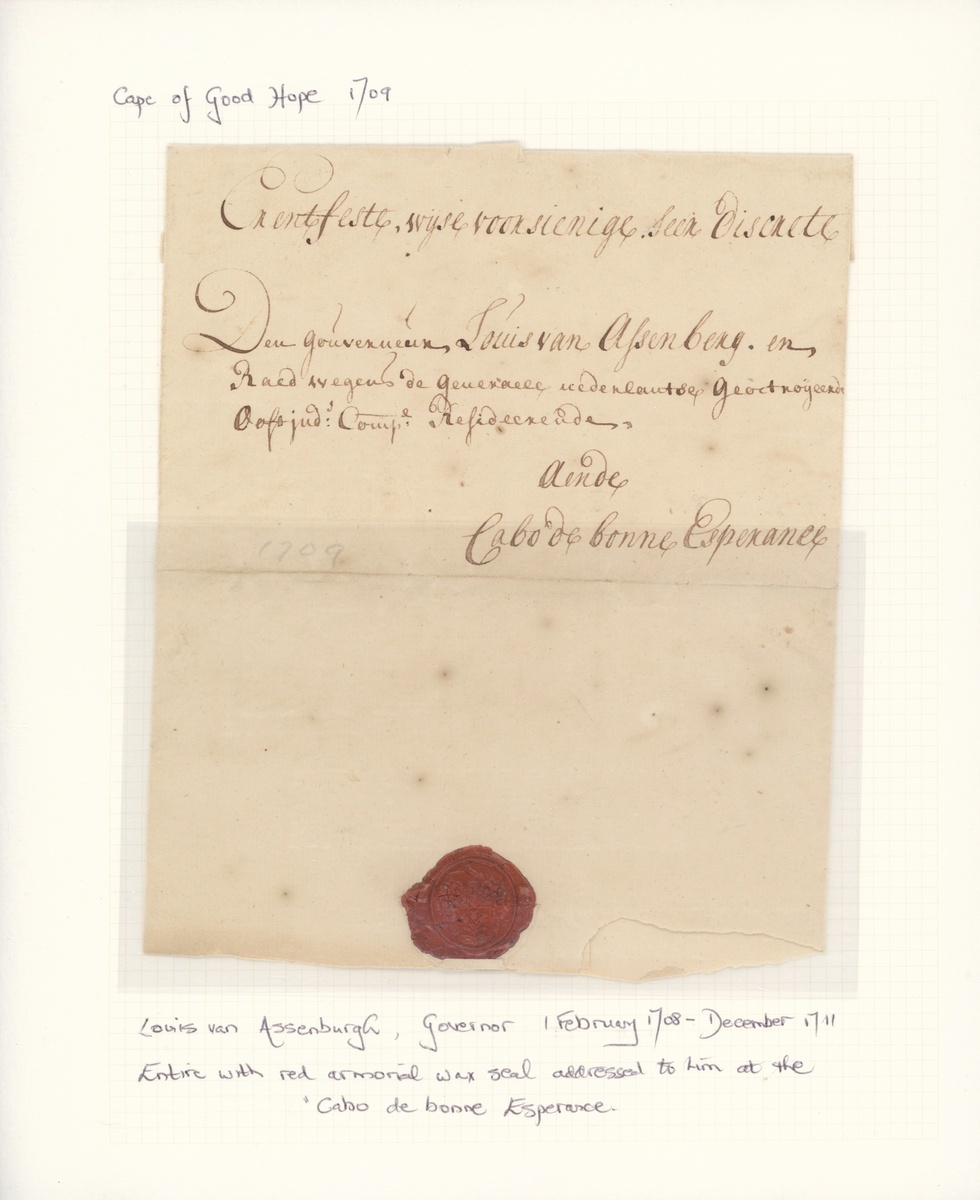 Cape of Good Hope 1709
Erentfeste, wijse voorsienige seer Discrete
Den gouverneur, Louis van Assenberg. en
Raed wegens de generaele nederlantse Geoctroijeerde
Oostind:s Comp:e Resideerende
Aende
Cabo de bonne Esperance
1709
Louis van Assenburgh, Governor 1 February 1708 - December 1711
Entire with red armorial wax seal addressed to him at the
'Cabo de bonne Esperance.